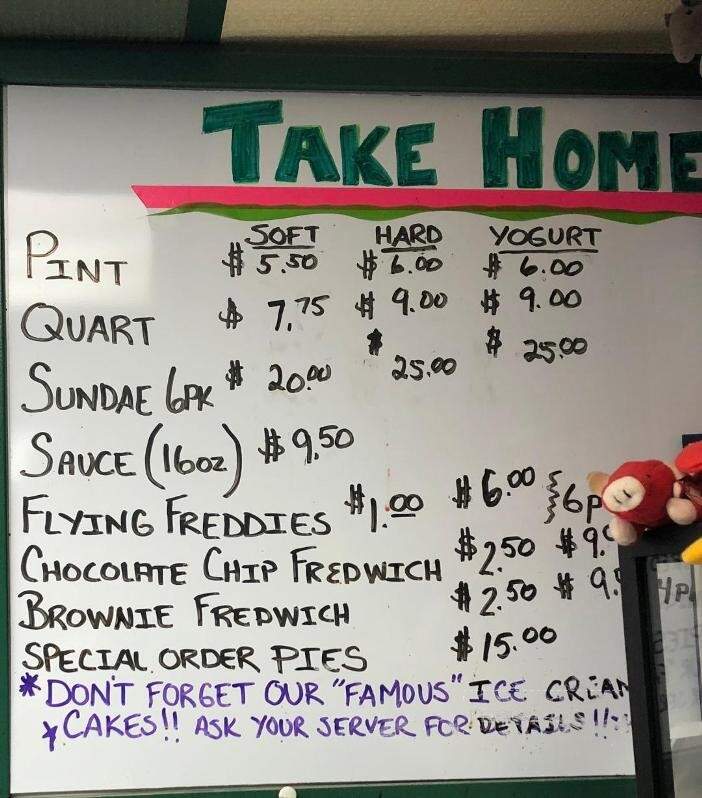 TAKE HOME
SOFT HARD YOGURT
PINT $5.50 $6.00 $6.00
QUART $7.75 $9.00 $9.00
SUNDAE 6PK $20.00 $25.00 $25.00
SAUCE (16oz) $9.50
FLYING FREDDIES $1.00 $6.00 } 6p
CHOCOLATE CHIP FREDWICH $2.50 $9.
BROWNIE FREDWICH $2.50 $9. 4P
SPECIAL ORDER PIES $15.00
*DON'T FORGET OUR "FAMOUS" ICE CREAM
*CAKES!! ASK YOUR SERVER FOR DETAILS!!